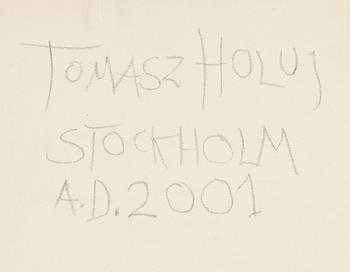 TOMASZ HOLUJ
STOCKHOLM
A.D. 2001